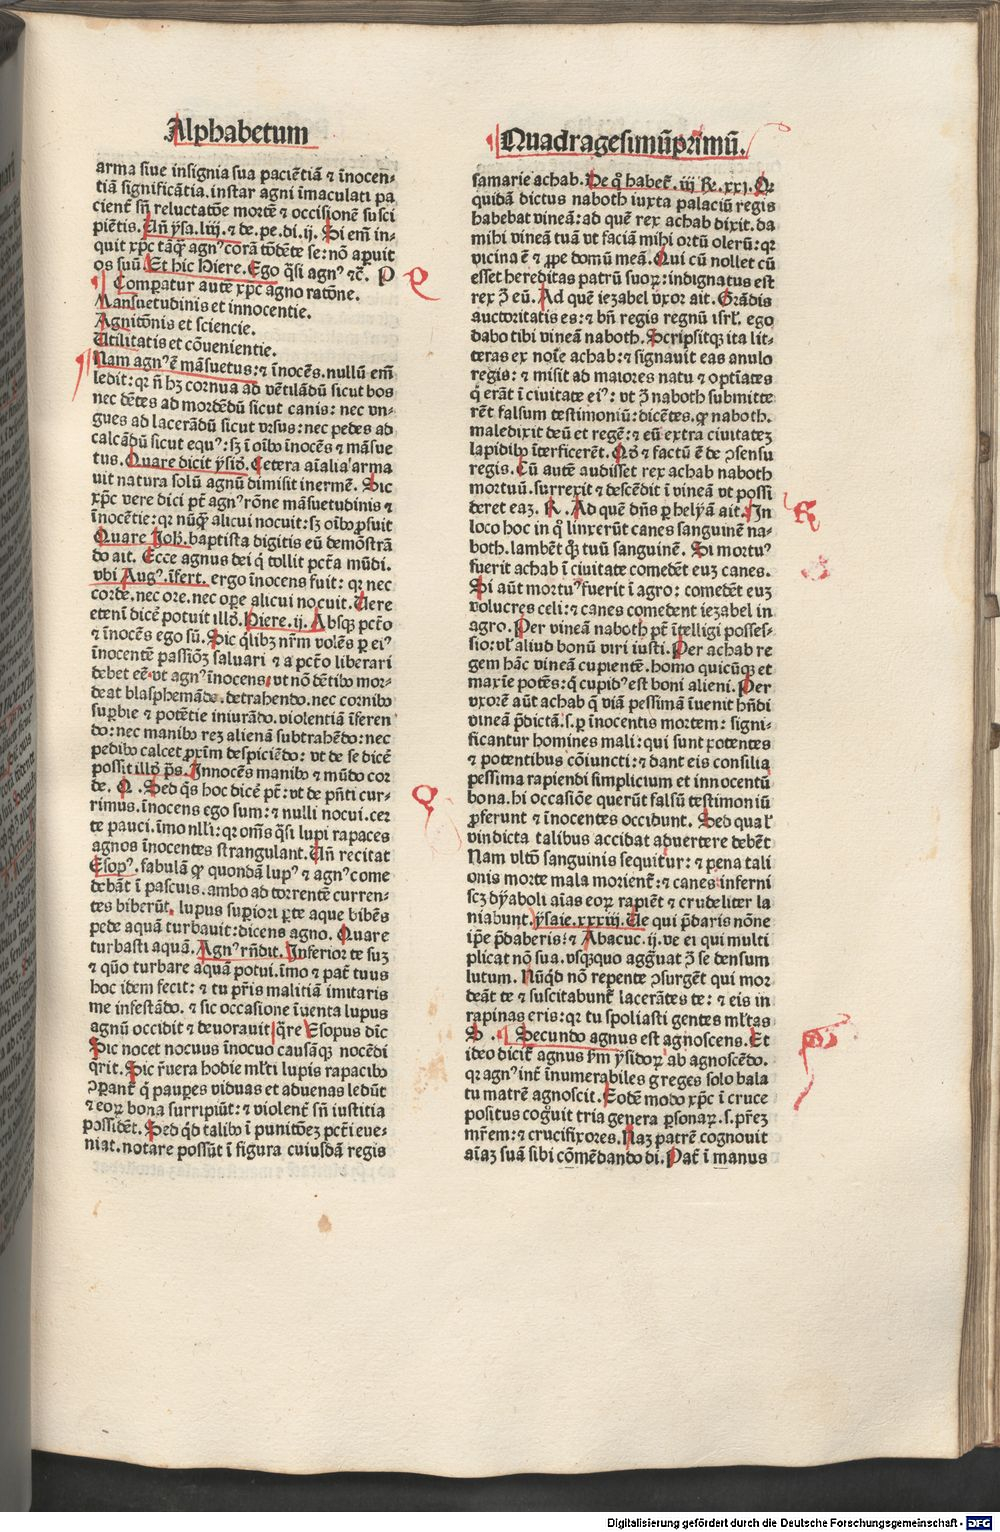 Alphabetum
arma siue insignia sua paciẽtiã ⁊ ĩnocen⸗
tiã significãtia. instar agni ĩmaculati pa
cient̃ sñ reluctatõe mortẽ ⁊ occisionẽ susci
piẽtis. Uñ ysa. liij. ⁊ de. pe. di. ij. Si em̃ in⸗
quit xp̃c tãq̃ᷓ agnꝰ corã tõdẽte se: nõ aꝑuit
os suũ. Et hic Hiere. Ego q̃si agnꝰ ⁊c̃. P
Comꝑatur autẽ xp̃c agno ratõne.
Mansuetudinis et innocentie.
Agnitõnis et sciencie.
Utilitatis et cõuenientie.
Nam agnꝰ ẽ mãsuetus: ⁊ ĩnocẽs. nullũ em̃
ledit: qꝛ ñ hꝫ cornua ad vẽtilãdũ sicut bos
nec dẽtes ad mordẽdũ sicut canis: nec vn⸗
gues ad lacerãdũ sicut vrsus: nec pedes ad
calcãdũ sicut equꝰ: sꝫ ĩ oĩbꝰ ĩnocẽs ⁊ mãsue
tus. Quare dicit ysiđ. Cetera aĩalia arma
uit natura solũ agnũ dimisit inermẽ. Sic
xp̃c vere dici pt̃ agnꝰ rõne mãsuetudinis ⁊
ĩnocẽtie: qꝛ nũq̃ᷓ alicui nocuit: sꝫ oĩbꝰ ꝓsuit
Quare Joh̃. baptista digitis eũ demõstrã
do ait. Ecce agnus dei q̃ tollit pct̃a mũdi.
vbi Augꝰ. ĩfert. ergo ĩnocens fuit: qꝛ nec
corde. nec ore. nec oꝑe alicui nocuit. Uere
etenĩ dicẽ potuit illđ. Hiere. ij. Absqꝫ pct̃o
⁊ ĩnocẽs ego sũ. Sic q̃libꝫ nr̃m volẽs ꝑ eiꝰ
ĩnocentẽ passiõꝫ saluari ⁊ a pct̃o liberari
debet eẽ vt agnꝰ ĩnocens. vt nõ dẽtibꝰ mor⸗
deat blasphemãdo. detrahendo. nec cornibꝰ
suꝑbie ⁊ potẽtie iniurãdo. violentiã ĩferen
do: nec manibꝰ reꝫ alienã subtrahẽdo: nec
pedibꝰ calcet ꝓxĩm despiciẽdo: vt de se dicẽ
possit illđ p̃s. Innocẽs manibꝰ ⁊ mũdo cor
de. Q. Sed q̃s hoc dicẽ pt̃: vt de pñti cur⸗
rimus. ĩnocens ego sum: ⁊ nulli nocui. cer
te pauci. ĩmo nłli: qꝛ om̃s q̃si lupi rapaces
agnos ĩnocentes strangulant. Uñ recitat
Esopꝰ. fabulã ꝙ quondã lupꝰ ⁊ agnꝰ come
debãt ĩ pascuis. ambo ad torrentẽ curren⸗
tes biberũt. lupus suꝑiori ꝑte aque bibẽs
pede aquã turbauit: dicens agno. Quare
turbasti aquã. Agnꝰ rñdit. Inferior te suꝫ
⁊ qũo turbare aquã potui. ĩmo ⁊ pat̃ tuus
hoc idem fecit: ⁊ tu pr̃is malitiã imitaris
me infestãdo. ⁊ sic occasione ĩuenta lupus
agnũ occidit ⁊ deuorauit q̃re Esopus dic̃
Sic nocet nocuus ĩnocuo causãqꝫ nocẽdi
q̃rit. Sic r̃uera hodie mĩti lupis rapacibꝰ
ꝯꝑant̃ q̃ pauꝑes viduas et aduenas ledũt
⁊ eoꝝ bona surripiũt: ⁊ violent̃ sñ iustitia
possidẽt. Sed q̃d talibꝰ ĩ punitõeꝫ pct̃i eue⸗
niat. notare possũt ĩ figura cuiusdã regis
Quadragesimũprimũ.
samarie achab. De q̃ habet̃. iij Re. xxj. Q
quidã dictus naboth iuxta palaciũ regis
habebat vineã: ad quẽ rex achab dixit. da
mihi vineã tuã vt faciã mihi ortũ olerũ: qꝛ
vicina ẽ ⁊ ꝓpe domũ meã. Qui cũ nollet cũ
esset hereditas patrũ suoꝝ: indignatus est
rex ꝯ̃ eũ. Ad quẽ iezabel vxor ait. Grãdis
auctoritatis es: ⁊ bñ regis regnũ isrł. ego
dabo tibi vineã naboth. Scripsitqꝫ ita lit⸗
teras ex noĩe achab: ⁊ signauit eas anulo
regis: ⁊ misit ad maiores natu ⁊ optĩates
q̃ erãt ĩ ciuitate eiꝰ: vt ꝯ̃ naboth submitte
rẽt falsum testimoniũ: dicẽtes. ꝙ naboth.
maledixit deũ et regẽ: ⁊ eũ extra ciuitateꝫ
lapidibꝰ ĩterficerẽt. Qđ ⁊ factũ ẽ de ꝯsensu
regis. Cũ autẽ audisset rex achab naboth
mortuũ. surrexit ⁊ descẽdit ĩ vineã vt possi
deret eaꝫ. R. Ad quẽ dñs ꝑ helyã ait. In
loco hoc in q̃ linxerũt canes sanguinẽ na⸗
both. lambẽt q̃ꝫ tuũ sanguinẽ. Si mortuꝰ
fuerit achab ĩ ciuitate comedẽt euꝫ canes.
Si aũt mortuꝰ fuerit ĩ agro: comedẽt euꝫ
volucres celi: ⁊ canes comedent iezabel in
agro. Per vineã naboth pt̃ ĩtelligi posses⸗
sio: vł aliud bonũ viri iusti. Per achab re
gem hãc vineã cupientẽ. homo quicũqꝫ et
maxĩe potẽs: q̃ cupidꝰ est boni alieni. Per
vxorẽ aũt achab q̃ viã pessimã ĩuenit hñdi
vineã p̃dictã. s. ꝑ ĩnocentis mortem: signi⸗
ficantur homines mali: qui sunt potentes
⁊ potentibus cõiuncti: ⁊ dant eis consilia
pessima rapiendi simplicium et innocentũ
bona. hi occasiõe querũt falsũ testimoniũ
ꝓferunt ⁊ ĩnocentes occidunt. Sed quał
vindicta talibus accidat aduertere debẽt
Nam vltõ sanguinis sequitur: ⁊ pena tali
onis morte mala morient̃: ⁊ canes inferni
scꝫ dyaboli aĩas eoꝝ rapiẽt ⁊ crudeliter la
niabunt. ysaie. xxxiij. Ue qui p̃daris nõne
ip̃e p̃daberis: ⁊ Abacuc. ij. ve ei qui multi
plicat nõ sua. vsqꝫquo aggrauat ꝯ̃ se densum
lutum. Nũq̃d nõ repente ꝯsurgẽt qui mor
deãt te ⁊ suscitabunt̃ lacerãtes te: ⁊ eis in
rapinas eris: qꝛ tu spoliasti gentes mĩtas
S. Secundo agnus est agnoscens. Et
ideo dicit̃ agnus ẜm ysidoꝝ ab agnoscẽdo.
qꝛ agnꝰ int̃ ĩnumerabiles greges solo bala
tu matrẽ agnoscit. Eodẽ modo xp̃c ĩ cruce
positus cognouit tria genera ꝑsonaꝝ. s. pr̃eꝫ
mr̃em: ⁊ crucifixores. Naꝫ patrẽ cognouit
aĩaꝫ suã sibi cõmẽdando dĩ. Pat̃ ĩ manus
P
R
Q
Digitalisierung gefördert durch die Deutsche Forschungsgemeinschaft - DFG